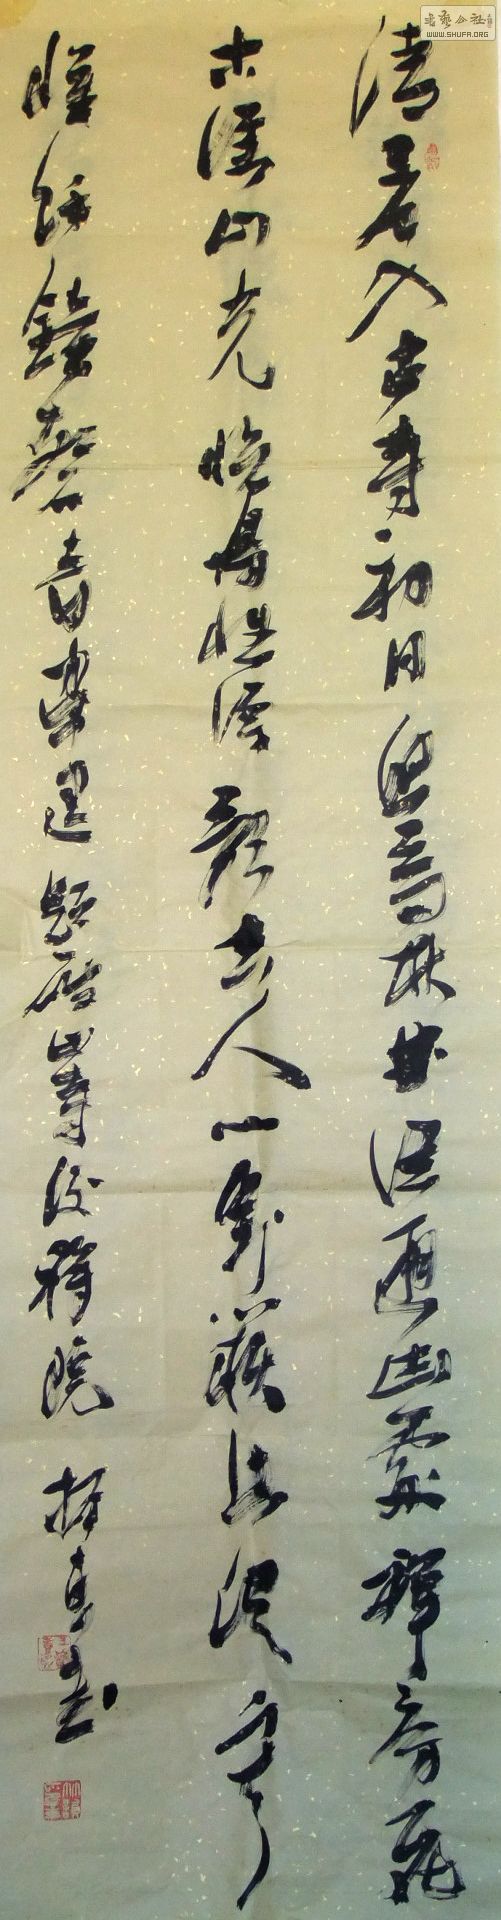 清晨入古寺初日照高林曲徑通幽處禪房花
木深山光悦鳥性潭影空人心萬籟此俱寂
惟餘鐘磬音常建題破山寺後禪院 書
書藝公社
WWW.SHUFA.ORG